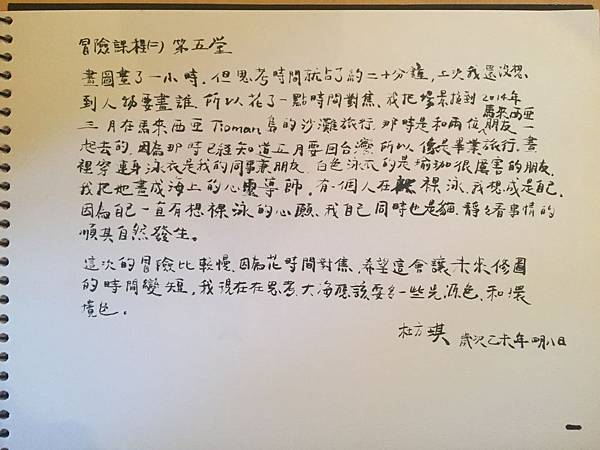 冒險課程(二) 第五堂
畫圖畫了一小時，但思考時間就占了約二十分鐘，上次我還沒想
到人物要畫誰，所以花了一點時間對焦，我把場景拉到2014年
三月在馬來西亞Tioman島的沙灘旅行，那時是和兩位馬來西亞朋友一
起去的，因為那時已經知道五月要回台灣，所以像是畢業旅行。畫
裡穿連身泳衣是我的同事兼朋友，白色泳衣的是瑜珈很厲害的朋友，
我把她畫成海上的心靈導師，有一個人在裸泳，我想成是自己，
因為自己一直有想裸泳的心願，我自己同時也是貓，靜靜看事情的
順其自然發生。
這次的冒險比較慢，因為花時間對焦，希望這會讓未來修圖
的時間變短，我現在在思考大海應該要給一些光源色，和環
境色。
杜方琪 歲次乙未年四月八日